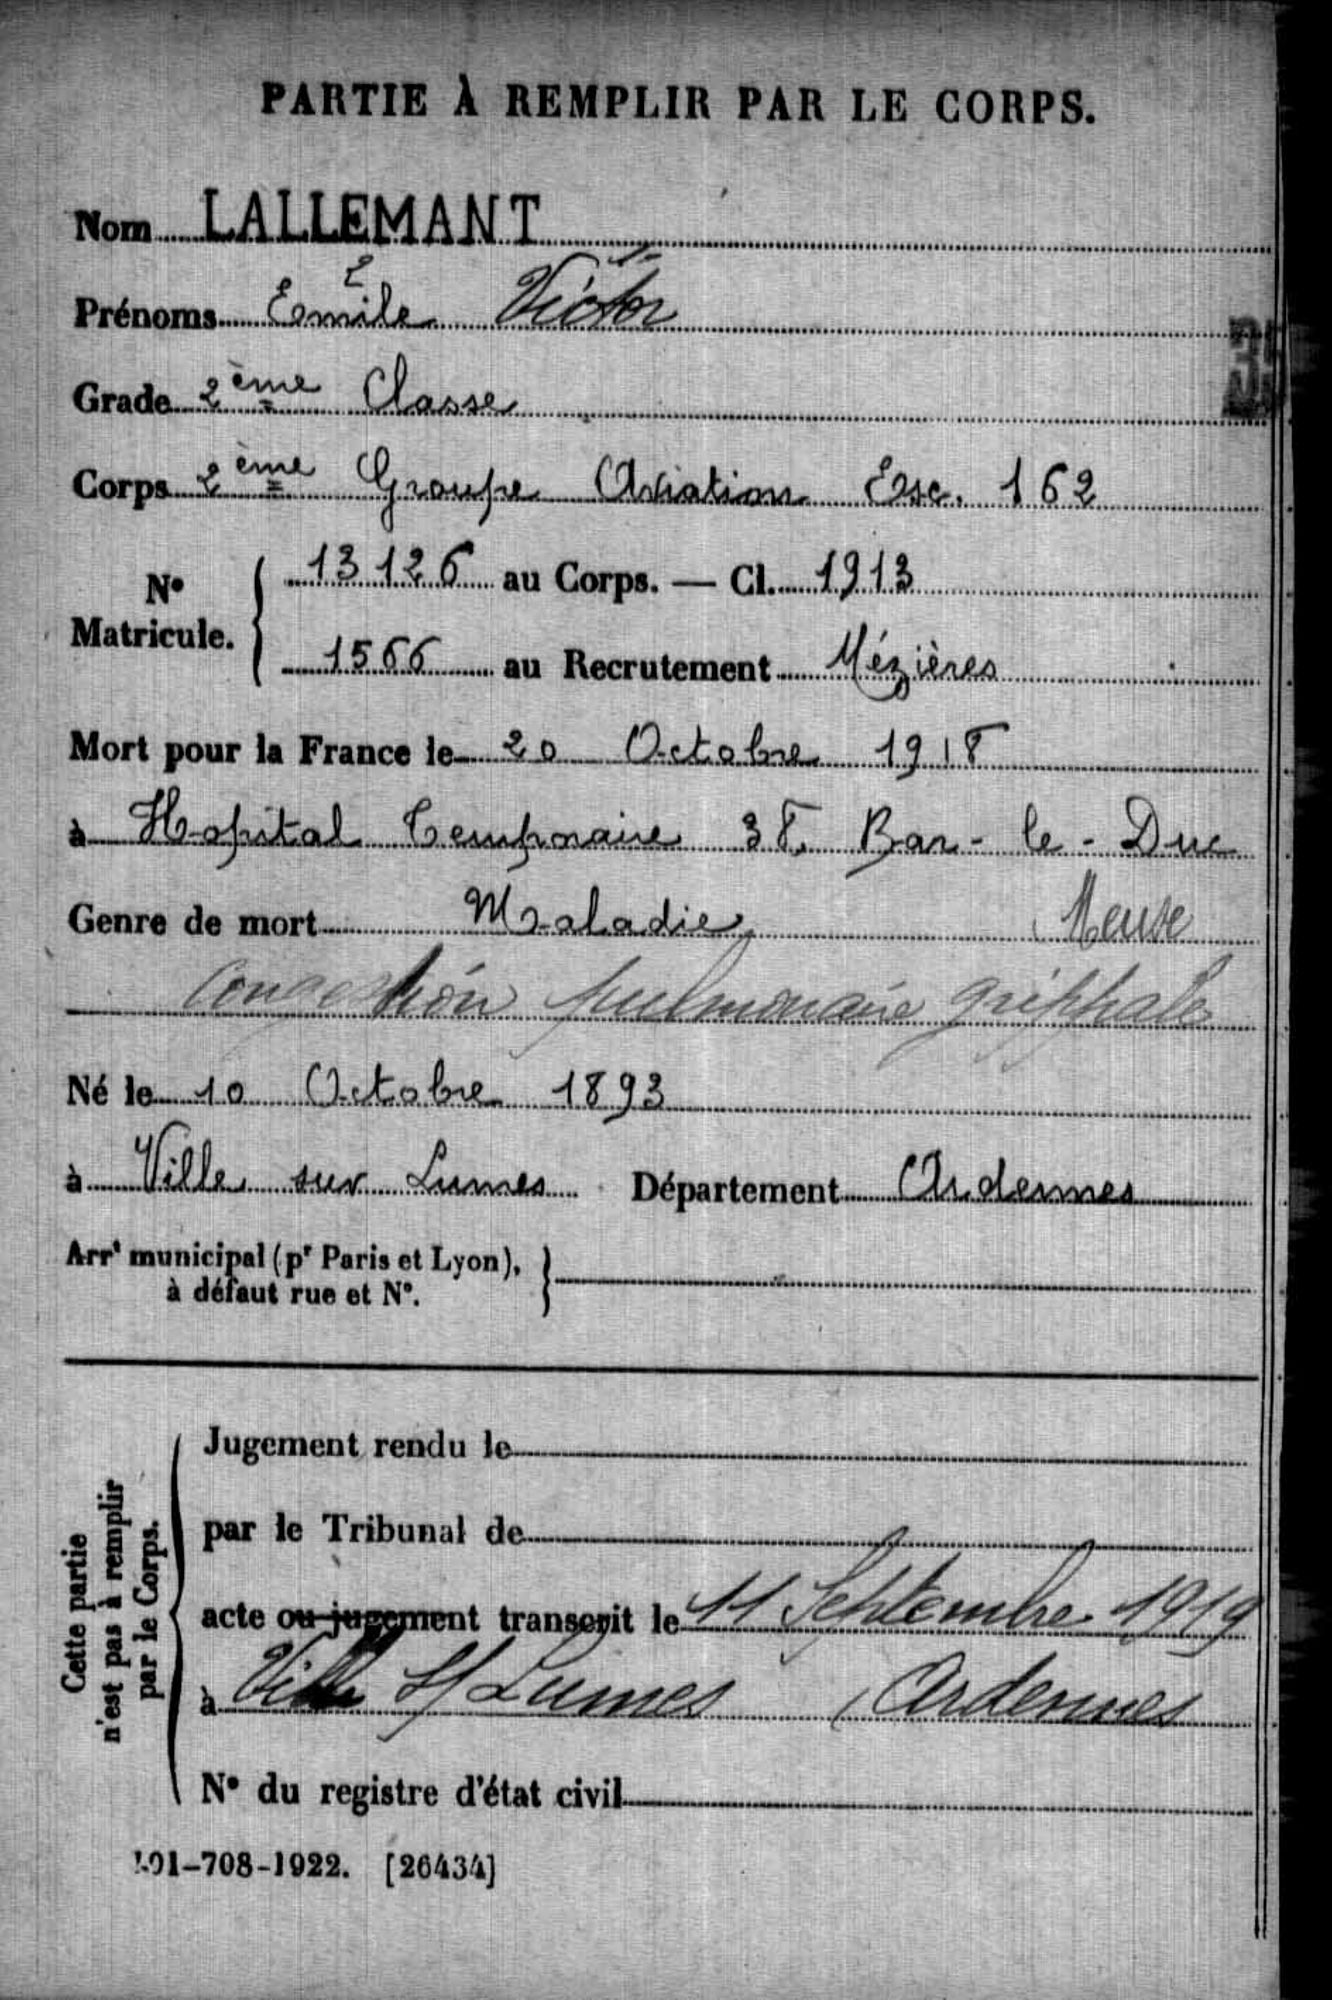 PARTIE À REMPLIR PAR LE CORPS.
Nom LALLEMANT
Prénoms Emile Victor
Grade 2ème Classe
Corps 2ème Groupe Aviation Esc. 162
N° Matricule. { 13126 au Corps. — Cl. 1913
1566 au Recrutement Mézières
Mort pour la France le 20 Octobre 1918
à Hopital Temporaire 38 Bar-le-Duc
Genre de mort Maladie Meuse
Congestion pulmonaire grippale
Né le 10 Octobre 1893
à Ville sur Lumes Département Ardennes
Arrt municipal (pr Paris et Lyon),
à défaut rue et N°.
Cette partie
n'est pas à remplir
par le Corps.
Jugement rendu le
par le Tribunal de
acte ou jugement transcrit le 11 Septembre 1919
à Ville S/ Lumes (Ardennes
N° du registre d'état civil
-708-1922. [26434]